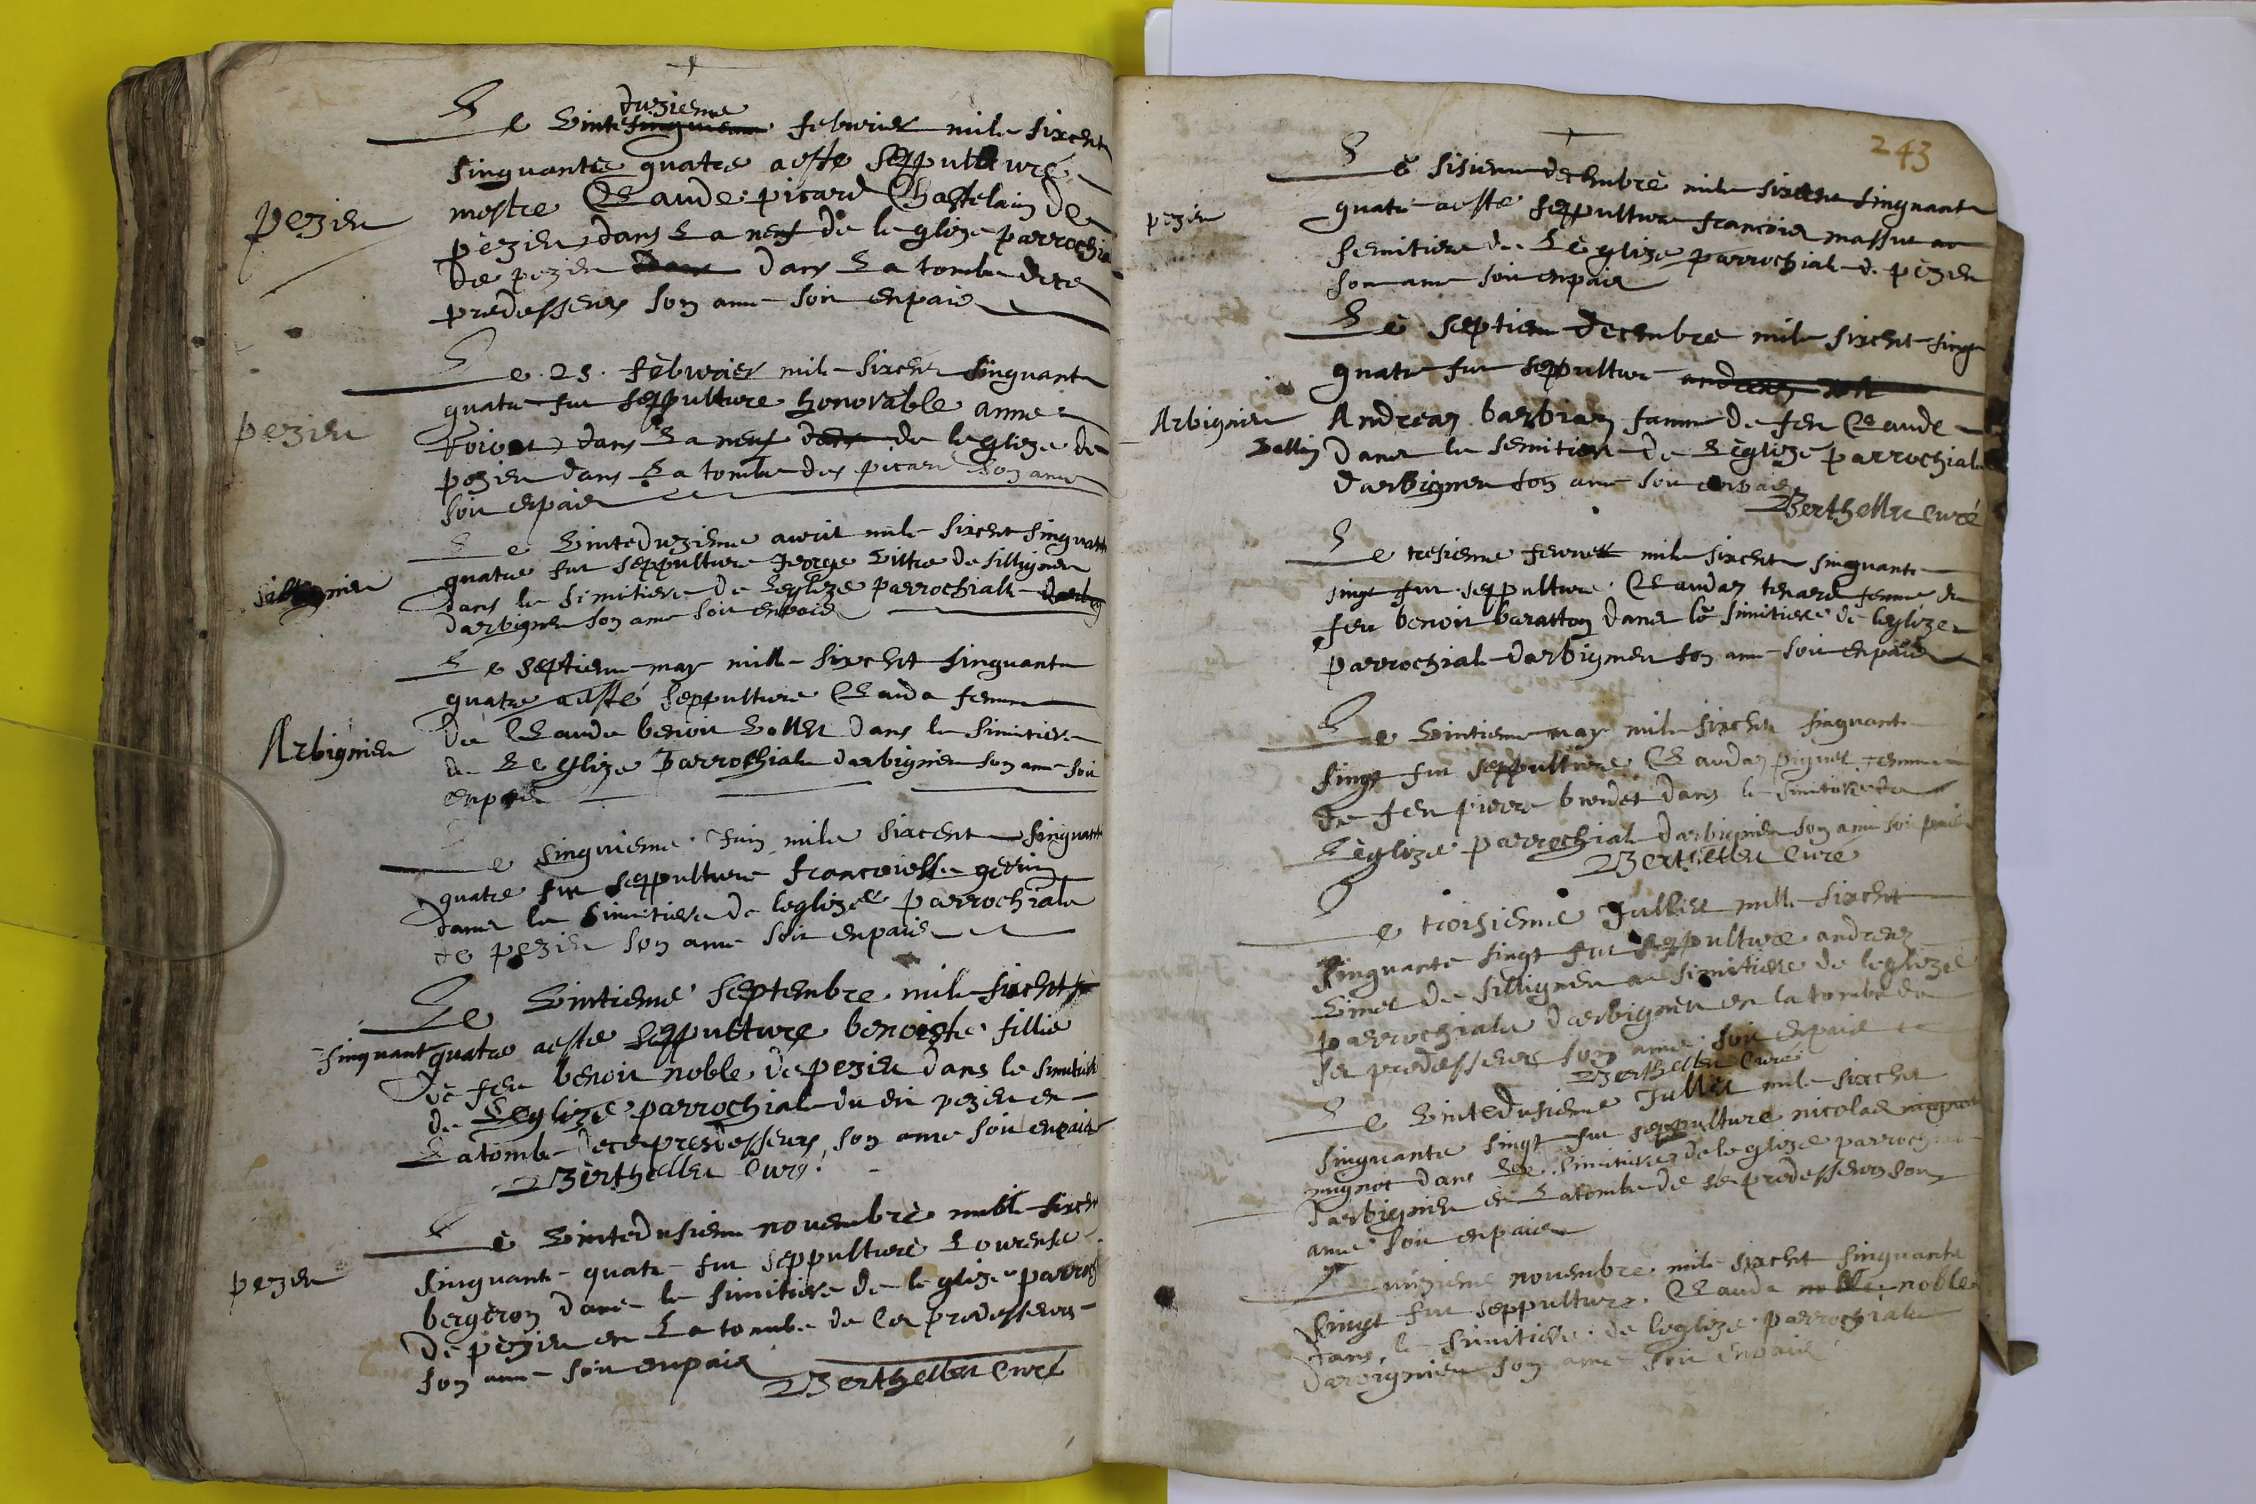 duzienne
Le Vinte singuienne februier mile sixcent
pezieu
singuante quatre a esté sepputturé
mestre Claude picard Chastelain de
pezieu dans La nesf de leglize parrochia
de pezieu dans dans La tombe dece
predesseurs son ame soit enpaie
Le 25 febvrier mile sixcent singuante
pezieu
quatre fut seppulture honorable anne
dans La nesf dans de leglize de
pezieu dans La tombe des picard son ame
soit enpaie
Le Vinteduzienne avril mile sixcent singuante
quatre fut seppulture George Vittre de sillignieu
sillignieu
dans le simitiere de Leglize parrochialle
darbignieu son ame soit enpaie
Le septiem may mille sixcent singuante
quatre a esté seppulture Clauda femme
Arbignieu
de Claude benoit Vollet dans le simitiere
de Leglize Parrochiale darbignieu son ame soit
enpaie
Le singuienne Juin mile sixcent singuante
quatre fut seppulture francoiesse gerin
dans le simitiere de leglize parrochiale
de pezieu son ame soit enpaie
Le Vintienne septembre mile sixcent
singuant quatre a esté seppulture benoiste fillie
de feu benoit noble de pezieu dans le simitiere
de Leglize parrochiale du dit pezieu en
La tombe dece predesseurs son ame soit enpaie
Berthellet Curé
Le Vintedusienne novembre mille sixcent
pezieu
singuante quatre fut seppulturé Lourense
bergeron dans le simitiere de leglize parroch
de pezieu en La tombe de Ces predesseurs
son ame soit enpaie
Berthellet Curé
243
Le sisienne decembre mile sixcent singuante
pezieu
quatre a esté seppulture francoies massue au
semitiere de Leglize parrochiale de pezieu
son ame soit enpaie
Le septiem decembre mile sixcent singu
quatre fut seppulture andreaz
Arbignieu
Andreaz barbiaz famme de feu Claude
Vollin dans le semitiere de Leglize parrochiale
darbignieu son ame soit enpaie
Berthellet Curé
Le tresienne mile sixcent singuante
singt fut seppulture Claudaz tenard femme de
feu benoit baratton dans le simitiere de leglize
parrochiale darbignieu son ame soit enpaie
Le Vintienne may mile sixcent singuante
singt fut seppulture Claudaz piguet femme
de feu pierre brondet dans le simitiere de
Leglize parrochiale darbignieu son ame soit paie
Berthellet Curé
Le troisienne Jullet mille sixcent
singuante singt fut seppulture andreaz
Vinet de sillignieu au simitiere de leglize
parrochiale darbignieu en la tombe de
ses predesseurs son ame soit enpaie
Berthellet Curé
Le Vintedusienne Jullet mile sixcent
singuante singt fut seppulture nicolas
mignot dans Le simitiere de leglize parrochiale
darbignieu en La tombe de se predesseurs son
ame soit enpaie
novembre mile sixcent singuante
singt fut seppulture Clauda noble noble
dans le simitiere de leglize parrochiale
darbignieu son ame soit enpaie